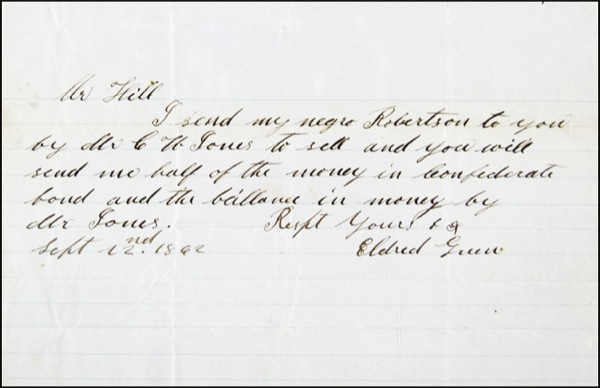 Mr Hill
I send my negro Robertson to you
by Mr C H Jones to sell and you will
send me half of the money in Confederate
bond and the ballance in money by
Mr Jones. Respt Yours &c
Sept 22nd. 1862 Eldred Green